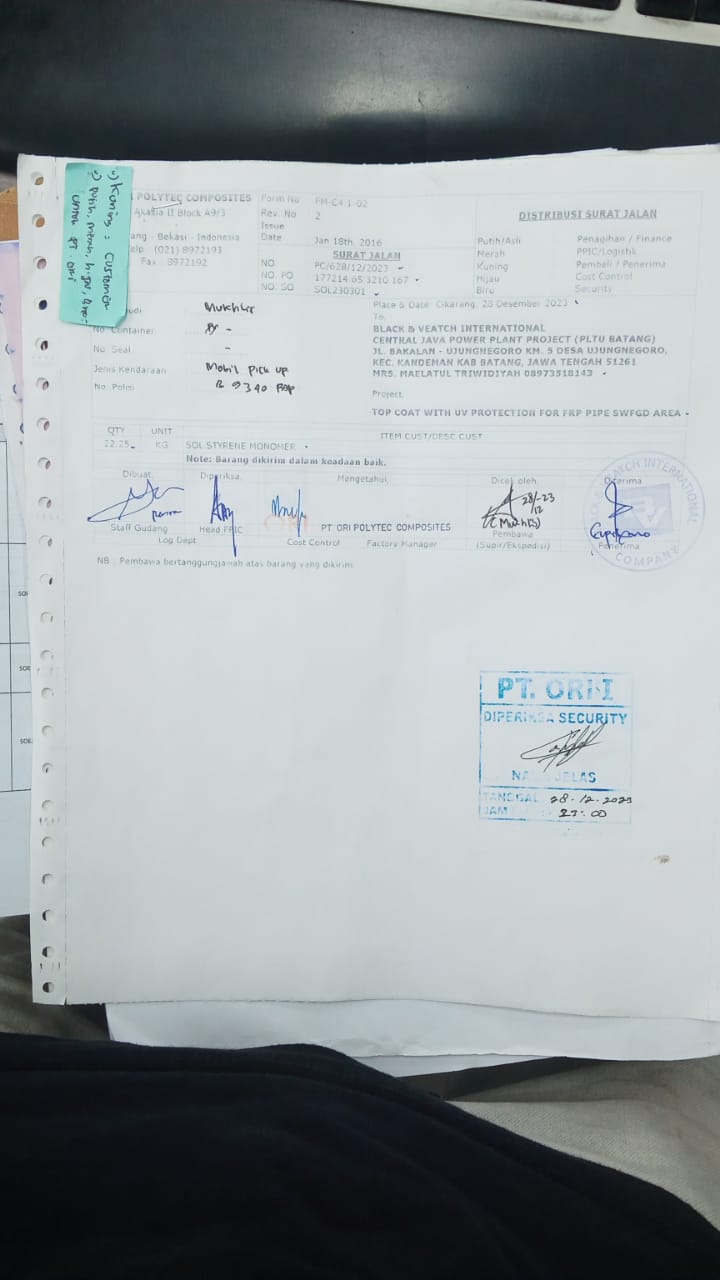 *) Kuning : Customer
*) putih, merah, hijau, biru :
untuk PT. ORI
POLYTEC COMPOSITES
Akasia II Block A9/3
ang - Bekasi - Indonesia
elp (021) 8972193
Fax 8972192
Form No FM-C4.1-02
Rev. No 2
Issue
Date Jan 18th. 2016
SURAT JALAN
NO. PC/628/12/2023
NO. PO 177214.65.3210.167
NO. SO SOL230301
DISTRIBUSI SURAT JALAN
Putih/Asli Penagihan / Finance
Merah PPIC/Logistik
Kuning Pembeli / Penerima
Hijau Cost Control
Biru Security
udi Mukhlis
No. Container -
No. Seal -
Jenis Kendaraan Mobil Pick up
No. Polisi B 9340
Place & Date: Cikarang, 28 Desember 2023
To.
BLACK & VEATCH INTERNATIONAL
CENTRAL JAVA POWER PLANT PROJECT (PLTU BATANG)
JL. BAKALAN - UJUNGNEGORO KM. 5 DESA UJUNGNEGORO,
KEC. KANDEMAN KAB BATANG, JAWA TENGAH 51261
MRS. MAELATUL TRIWIDIYAH 08973518143
Project.
TOP COAT WITH UV PROTECTION FOR FRP PIPE SWFGD AREA
QTY UNIT ITEM CUST/DESC CUST
22.25 KG SOL.STYRENE MONOMER
Note: Barang dikirim dalam keadaan baik.
Dibuat. Diperiksa. Mengetahui. Dicek oleh. Diterima
28/12-23
(Mukhlis)
PT ORI POLYTEC COMPOSITES
Staff Gudang Head PPIC Pembawa Penerima
Log Dept Cost Control Factory Manager (Supir/Ekspedisi)
VEATCH INTERNATIONAL
COMPANY
NB : Pembawa bertanggungjawab atas barang yang dikirim
PT. ORI
DIPERIKSA SECURITY
NAMA JELAS
TANGGAL 28.12.2023
JAM 23:00
SOL
SOL
SOL